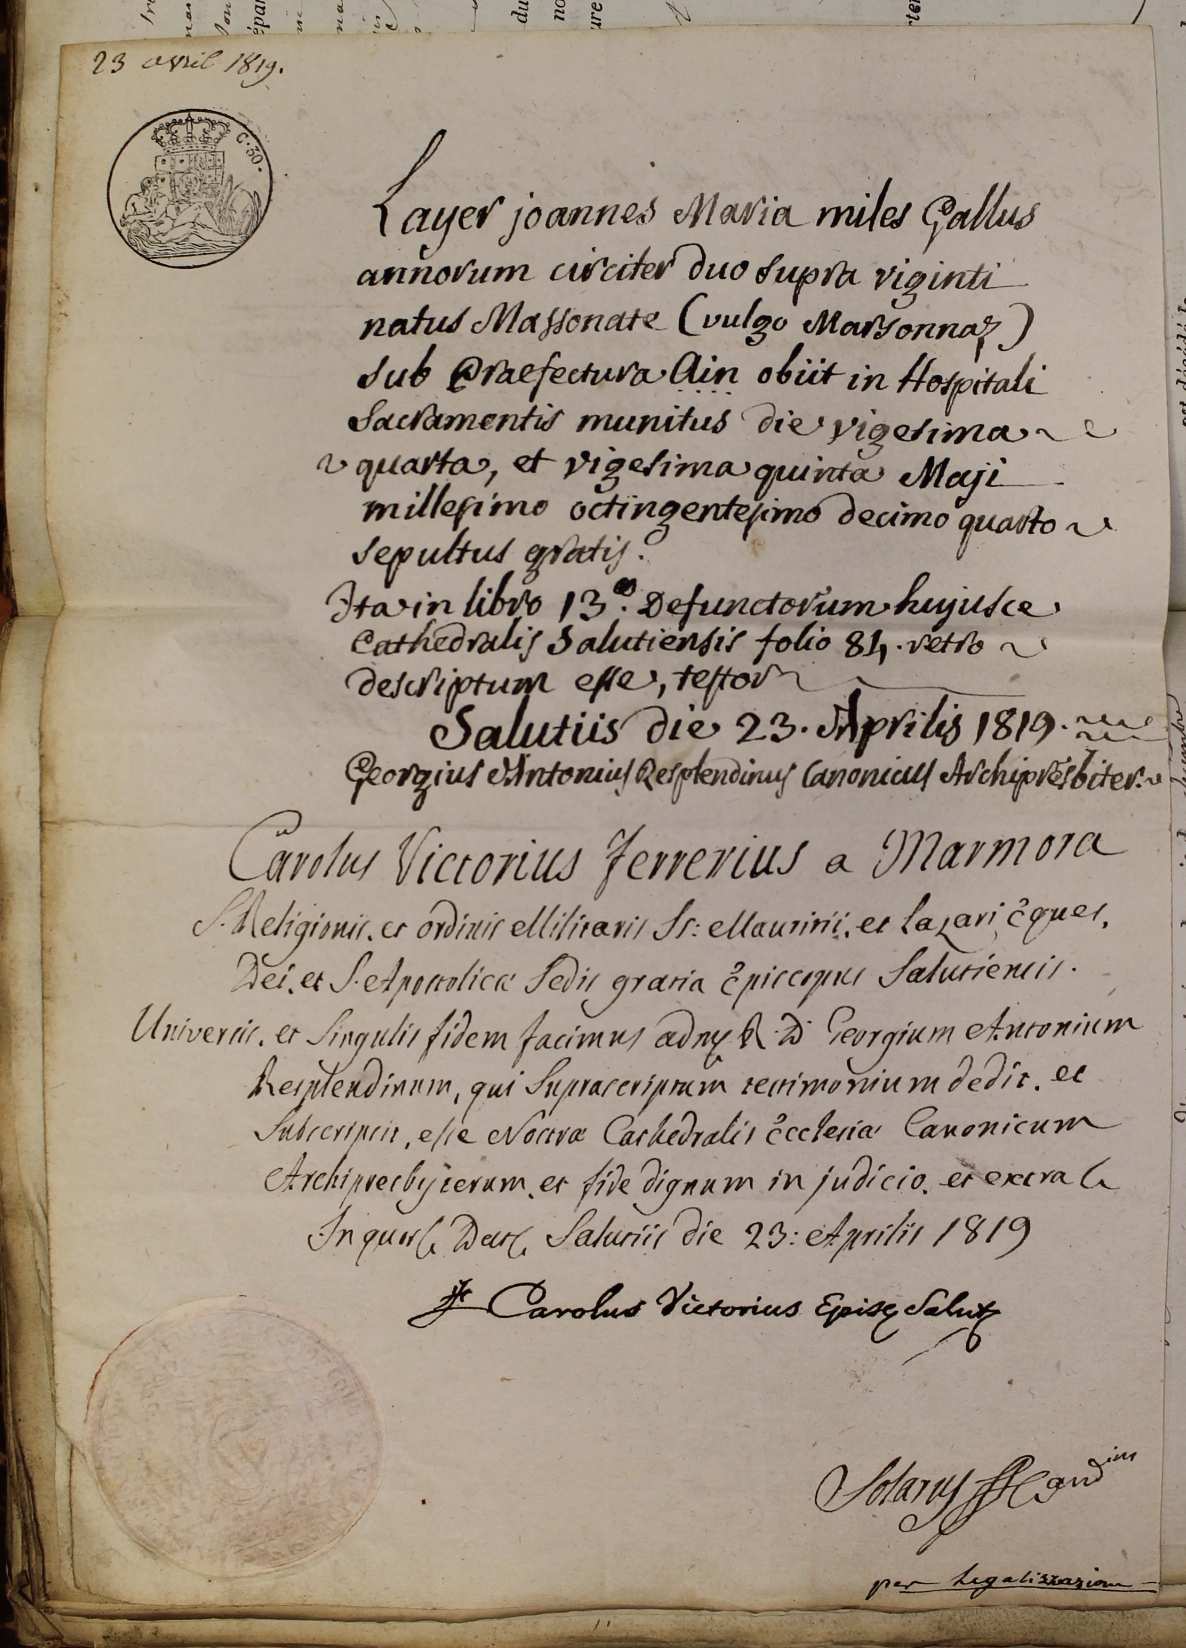 23 avril 1819.
C. 30.
Layer joannes Maria miles Gallus
annorum circiter duo supra viginti
natus Massonate (vulgo Marsonnaz)
sub Praefectura Ain obiit in Hospitali
Sacramentis munitus die vigesima
quarta, et vigesima quinta Maji
millesimo octingentesimo decimo quarto
sepultus gratis.
Ita in libro 13.º Defunctorum hujusce
Cathedralis Salutiensis folio 84. retro
descriptum esse, testor
Salutiis die 23. Aprilis 1819.
Georgius Antonius Resplendinus Canonicus Archipresbiter.
Carolus Victorius Ferrerius a Marmora
S. Religionis, et ordinis Militaris Ss: Mauritii, et Lazari Eques,
Dei, et S. Apostolicæ Sedis gratia Episcopus Salutiensis.
Universis, et Singulis fidem facimus R. D. Georgium Antonium
Resplendinum, qui Suprascriptum testimonium dedit, et
Subscripsit, esse Nostræ Cathedralis Ecclesiæ Canonicum
Archipresbyterum, et fide dignum in judicio, et extra
In quor Dat Salutiis die 23: Aprilis 1819
Carolus Victorius Episc Salut
Solarus
per legalizzazione